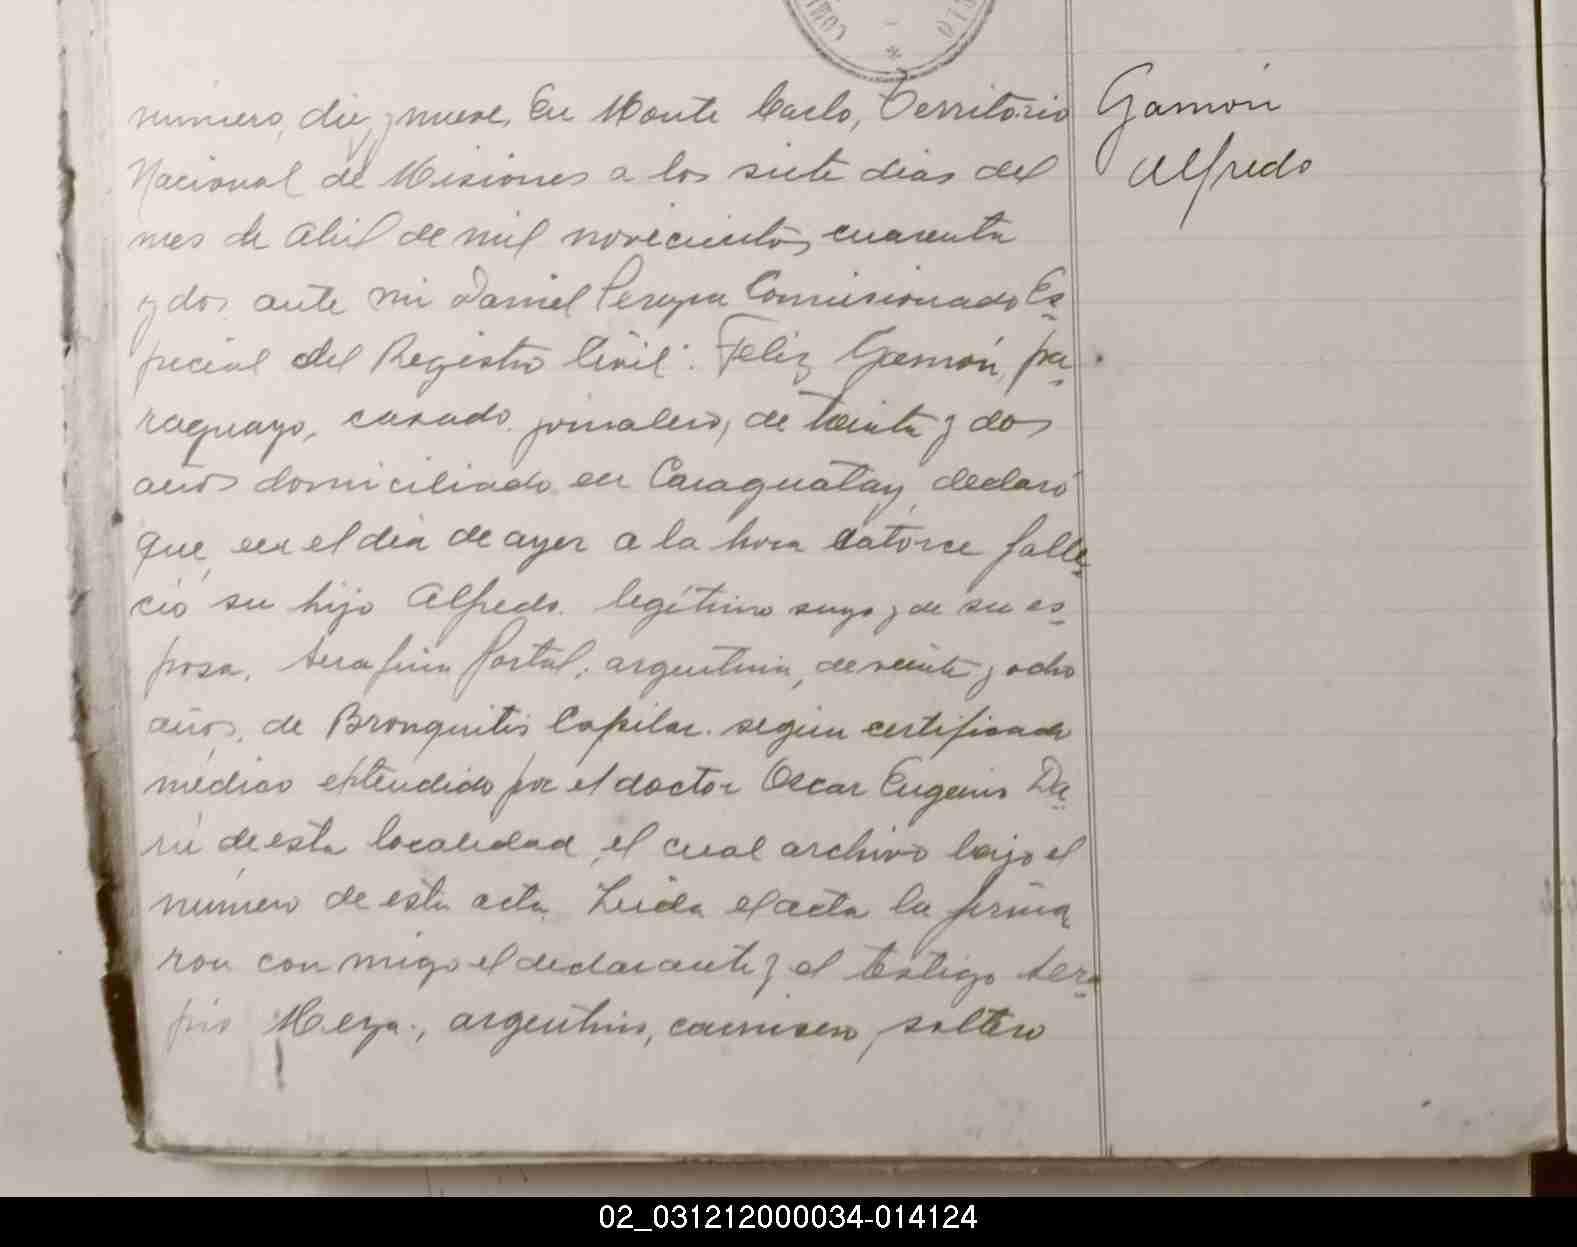 número, diez y nueve, En Monte Carlo, Territorio
Nacional de Misiones a los siete dias del
mes de Abril de mil novecientos cuarenta
y dos ante mi Daniel Pereyra Comisionado Es-
pecial del Registro Civil: Feliz Gamón, pa-
raguayo, casado. jornalero, de treinta y dos
años domiciliado en Caraguatay, declaró
que, en el dia de ayer a la hora catorce falle-
ció su hijo Alfredo. legítimo suyo y de su es-
posa, Serafina Portal, argentina, de veinte y ocho
años, de Bronquitis Capilar. según certificado
médico extendido por el doctor Oscar Eugenio Da-
rú de esta localidad, el cual archivo bajo el
número de esta acta. Leida el acta la firma
ron con migo el declarante y el testigo Sera-
pio Meza., argentino, carnicero, soltero
Gamón
Alfredo
02_031212000034-014124